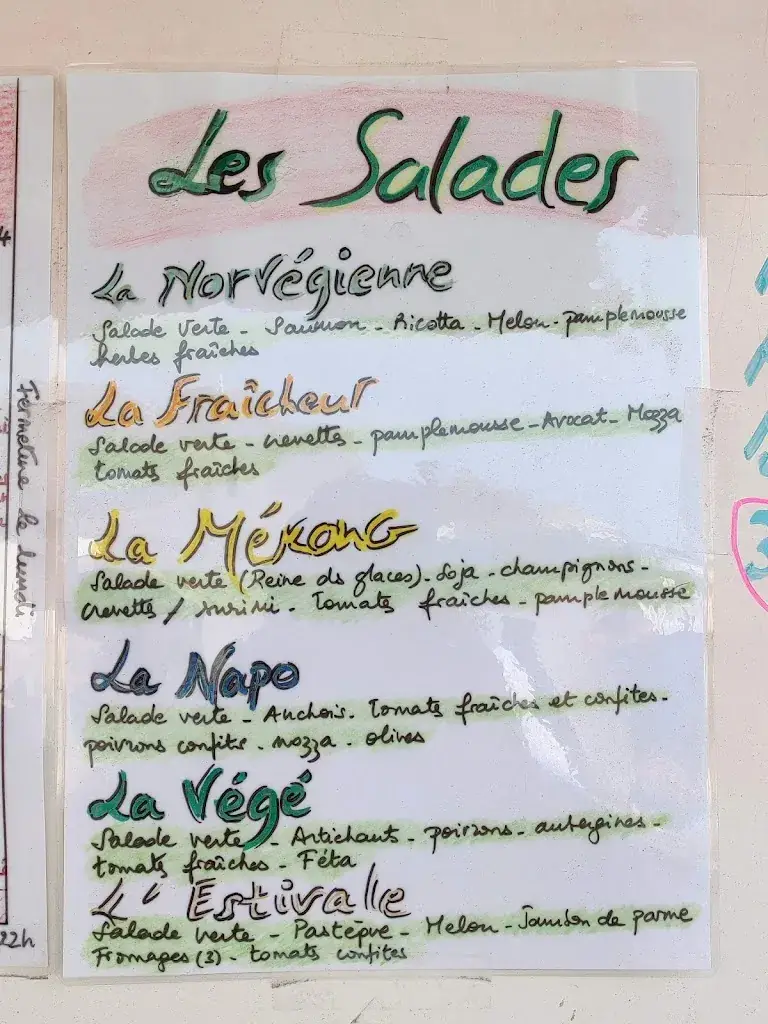 Les Salades
La Norvégienne
Salade verte - Saumon - Ricotta - Melon - pamplemousse
herbes fraîches
La Fraîcheur
Salade verte - crevettes - pamplemousse - Avocat - Mozza
tomats fraîches
La Mékong
Salade verte (Reine ds glaces) - Soja - champignons -
crevettes / surimi - Tomats fraîches - pamplemousse
La Napo
Salade verte - Anchois - Tomats fraîches et confites -
poivrons confits - mozza - olives
La Végé
Salade verte - Artichauts - poivrons - aubergines -
tomats fraîches - Féta
L'Estivalle
Salade verte - Pastèque - Melon - Jambon de parme
Fromages (3) - tomats confites
Fermeture le lundi
4
22h
3